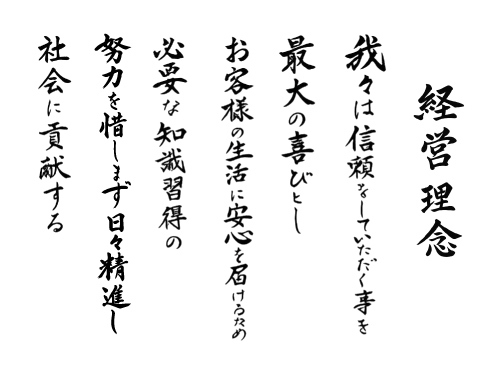 経営理念
我々は信頼をしていただく事を
最大の喜びとし
お客様の生活に安心を届けるため
必要な知識習得の
努力を惜しまず日々精進し
社会に貢献する